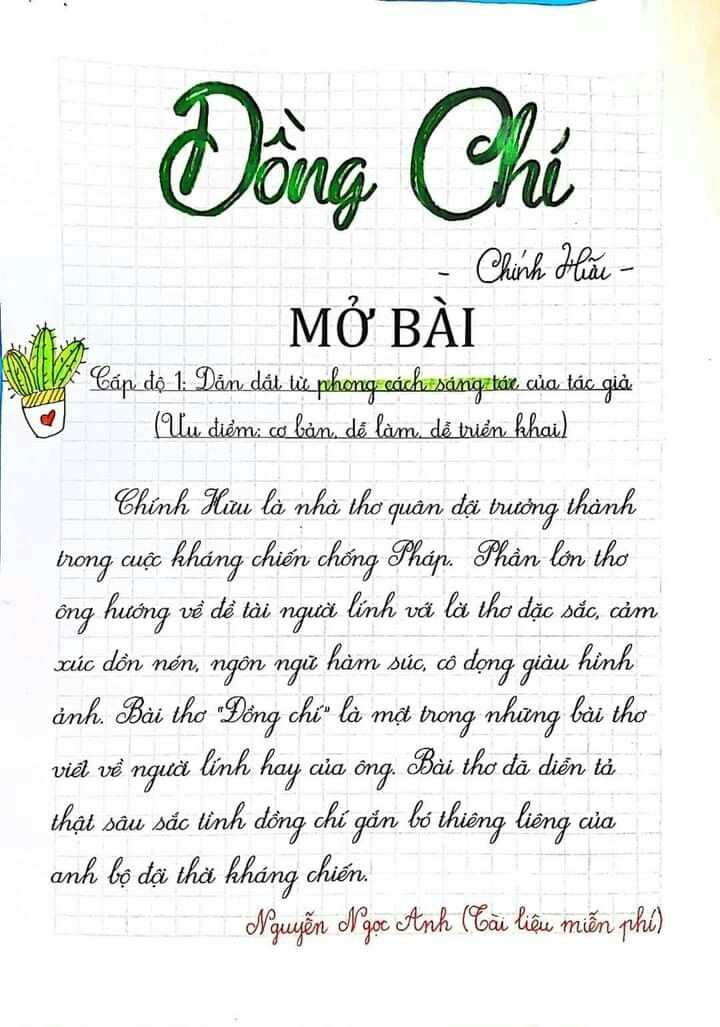 Đồng Chí
- Chính Hữu -
MỞ BÀI
Cấp độ 1: Dẫn dắt từ phong cách sáng tác của tác giả
(Ưu điểm: cơ bản, dễ làm, dễ triển khai)
Chính Hữu là nhà thơ quân đội trưởng thành
trong cuộc kháng chiến chống Pháp. Phần lớn thơ
ông hướng về đề tài người lính với lời thơ đặc sắc, cảm
xúc dồn nén, ngôn ngữ hàm súc, cô đọng giàu hình
ảnh. Bài thơ "Đồng chí" là một trong những bài thơ
viết về người lính hay của ông. Bài thơ đã diễn tả
thật sâu sắc tình đồng chí gắn bó thiêng liêng của
anh bộ đội thời kháng chiến.
Nguyễn Ngọc Anh (Tài liệu miễn phí)